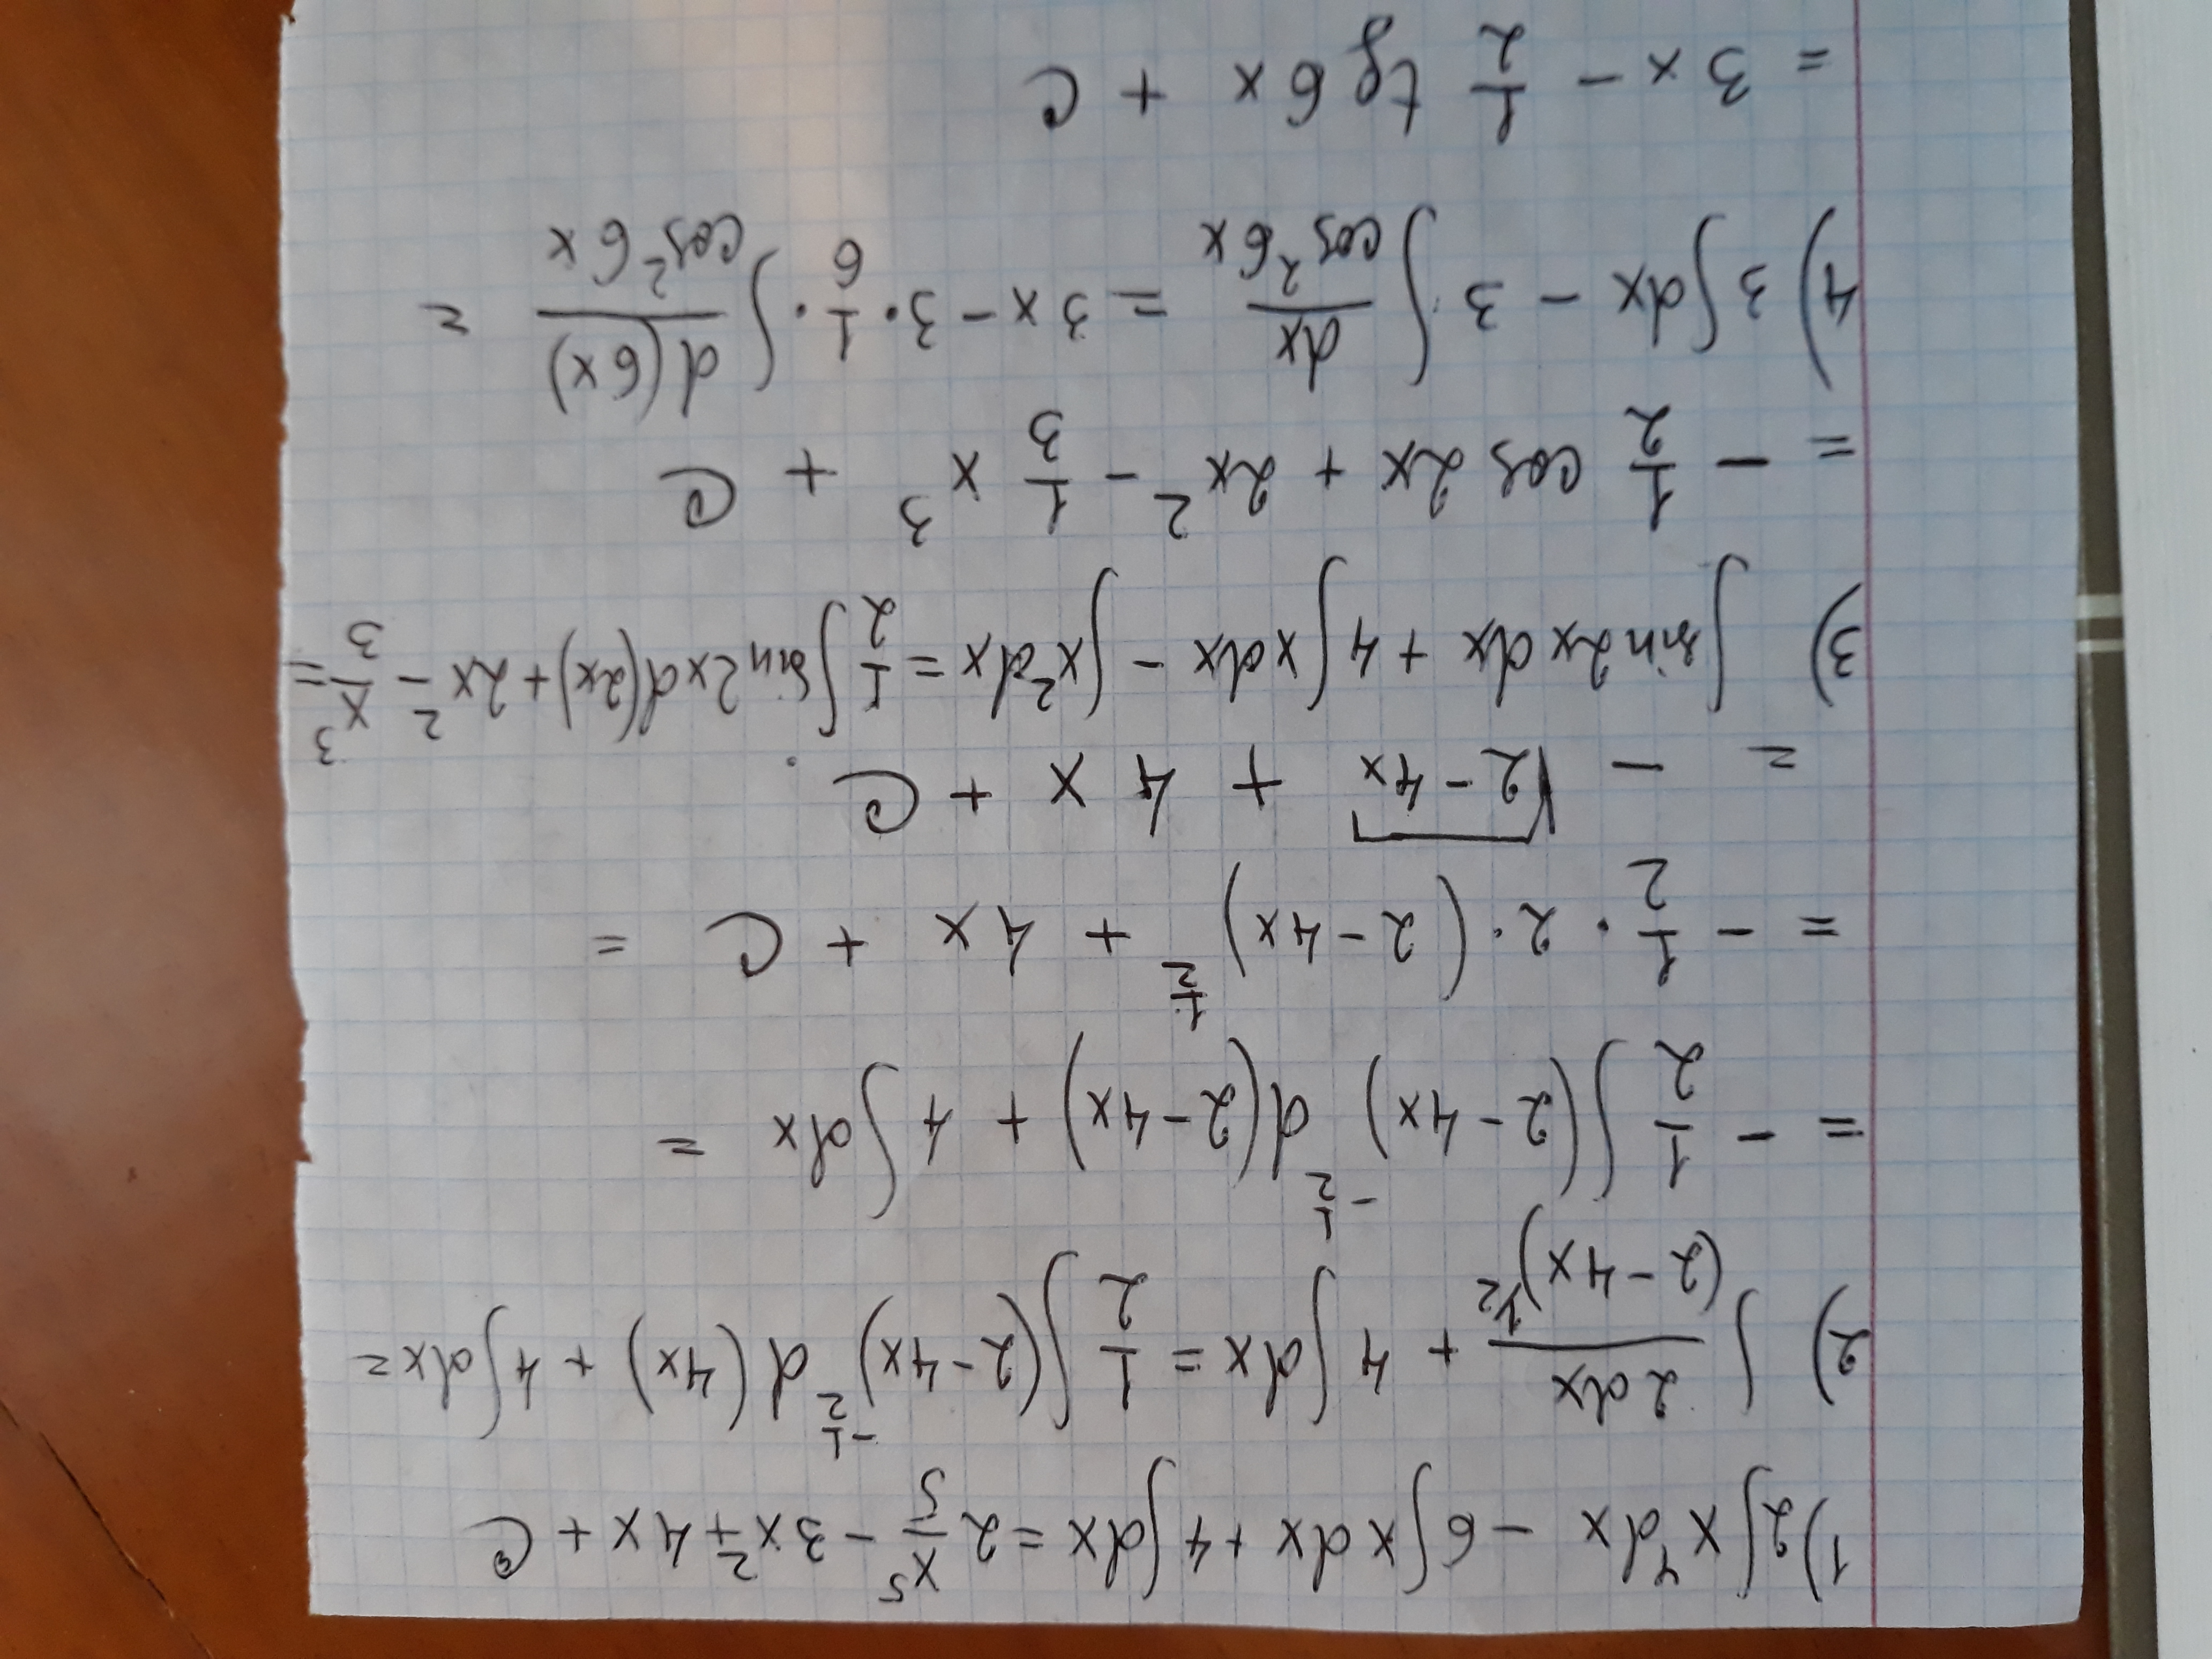 1) 2∫x⁴dx − 6∫x dx + 4∫dx = 2 x⁵/5 − 3x² + 4x + C
2) ∫ 2dx/(2−4x)^½ + 4∫dx = 1/2 ∫(2−4x)^(−1/2) d(4x) + 4∫dx =
= − 1/2 ∫(2−4x)^(−1/2) d(2−4x) + 4∫dx =
= − 1/2 · 2 · (2−4x)^(1/2) + 4x + C =
= − √(2−4x) + 4x + C
3) ∫sin2x dx + 4∫x dx − ∫x²dx = 1/2 ∫sin2x d(2x) + 2x² − x³/3 =
= − 1/2 cos 2x + 2x² − 1/3 x³ + C
4) 3∫dx − 3∫ dx/cos²6x = 3x − 3 · 1/6 · ∫ d(6x)/cos²6x =
= 3x − 1/2 tg 6x + C